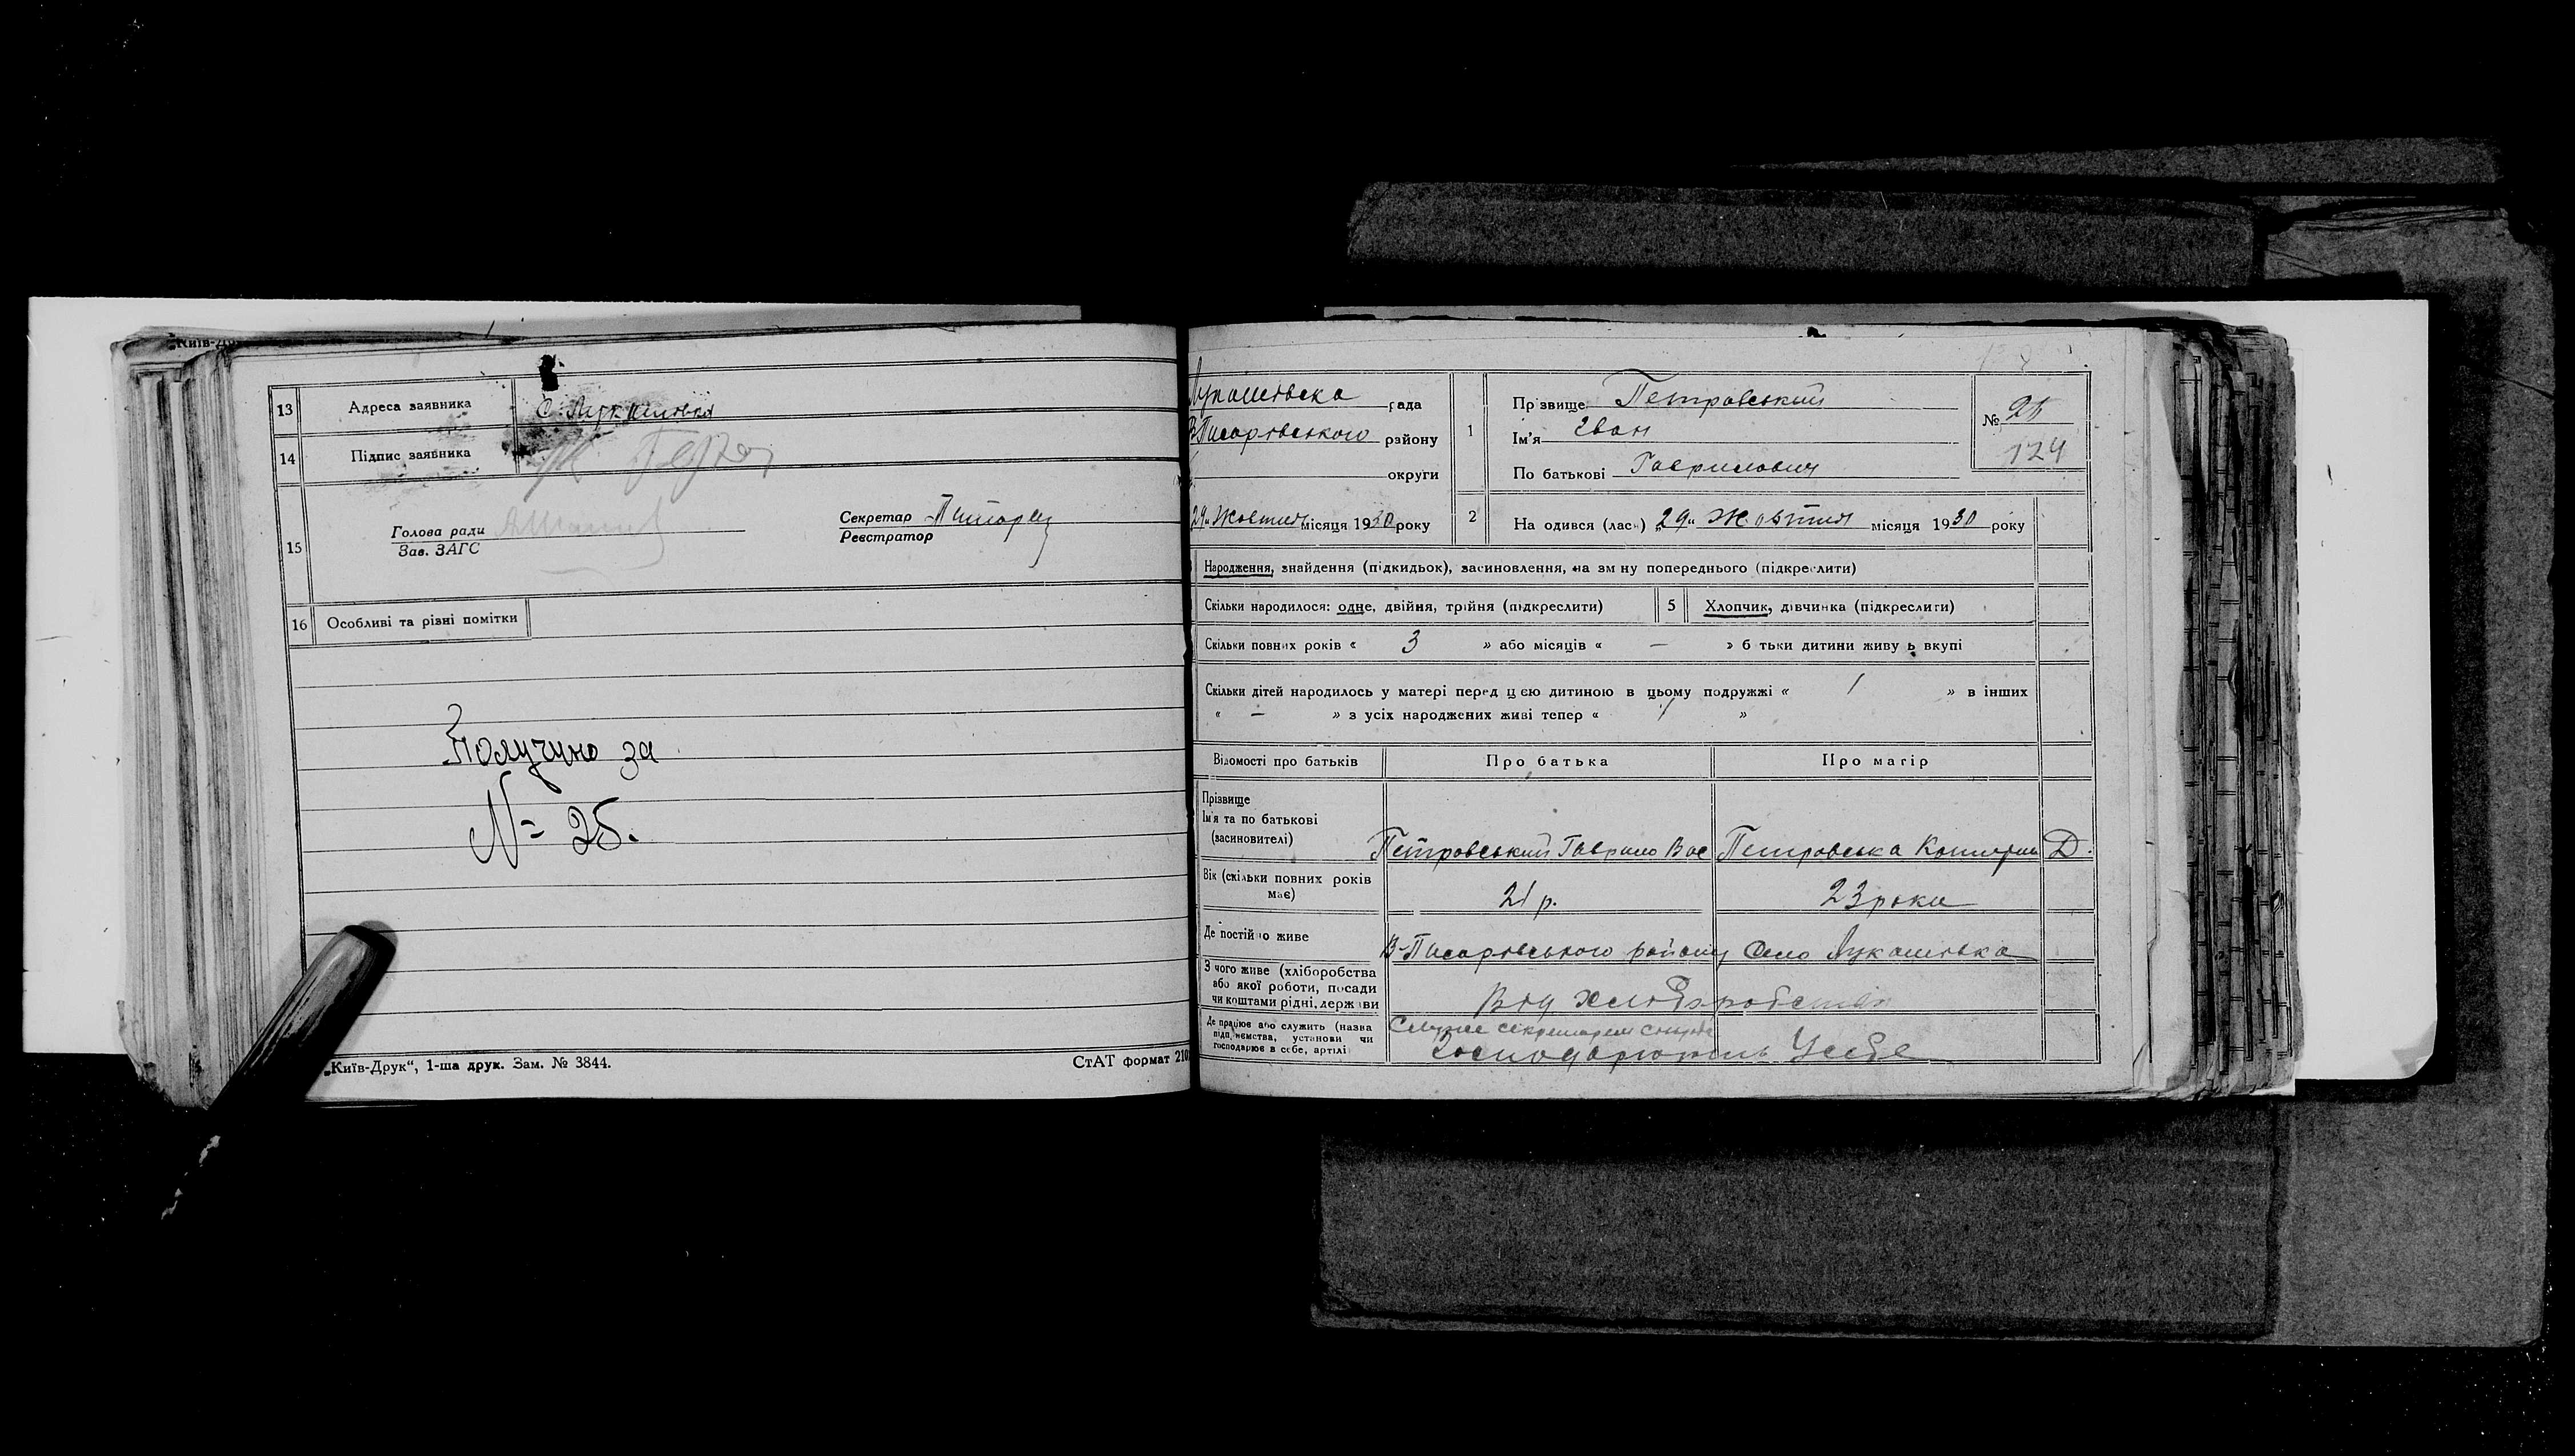 13 Адреса заявника С. Лукашовка
14 Підпис заявника
15 Голова ради
Зав. ЗАГС
Секретар
Реєстратор
16 Особливі та різні помітки
Получено за
№ 25.
„Київ-Друк“, 1-ша друк. Зам. № 3844.
СтАТ формат 210
Лукашовска рада
В-Писарівського району
округи
29 Жовтня місяця 1930 року
1 Прізвище Петровський
Ім'я Іван
По батькові Гаврилович
№ 25
124
2 Народився (лась) „29“ Жовтня місяця 1930 року
Народження, знайдення (підкидьок), засиновлення, на зміну попереднього (підкреслити)
Скільки народилося: одне, двійня, трійня (підкреслити) 5 Хлопчик, дівчинка (підкреслити)
Скільки повних років « 3 » або місяців « — » батьки дитини живуть вкупі
Скільки дітей народилось у матері перед цією дитиною в цьому подружжі « 1 » в інших
« — » з усіх народжених живі тепер « 1 »
Відомості про батьків Про батька Про матір
Прізвище
Ім'я та по батькові
(засиновителі) Петровський Гаврило Вас Петровська Катерин Д.
Вік (скільки повних років
має) 21 р. 23 роки
Де постійно живе В-Писарівського району Село Лукашовка
З чого живе (хліборобства
або якої роботи, посади
чи коштами рідні, держави Від хліборобства
Де працює або служить (назва
підприємства, установи чи
господарює в себе, артілі) Служе секретарем
Господарюють У себе